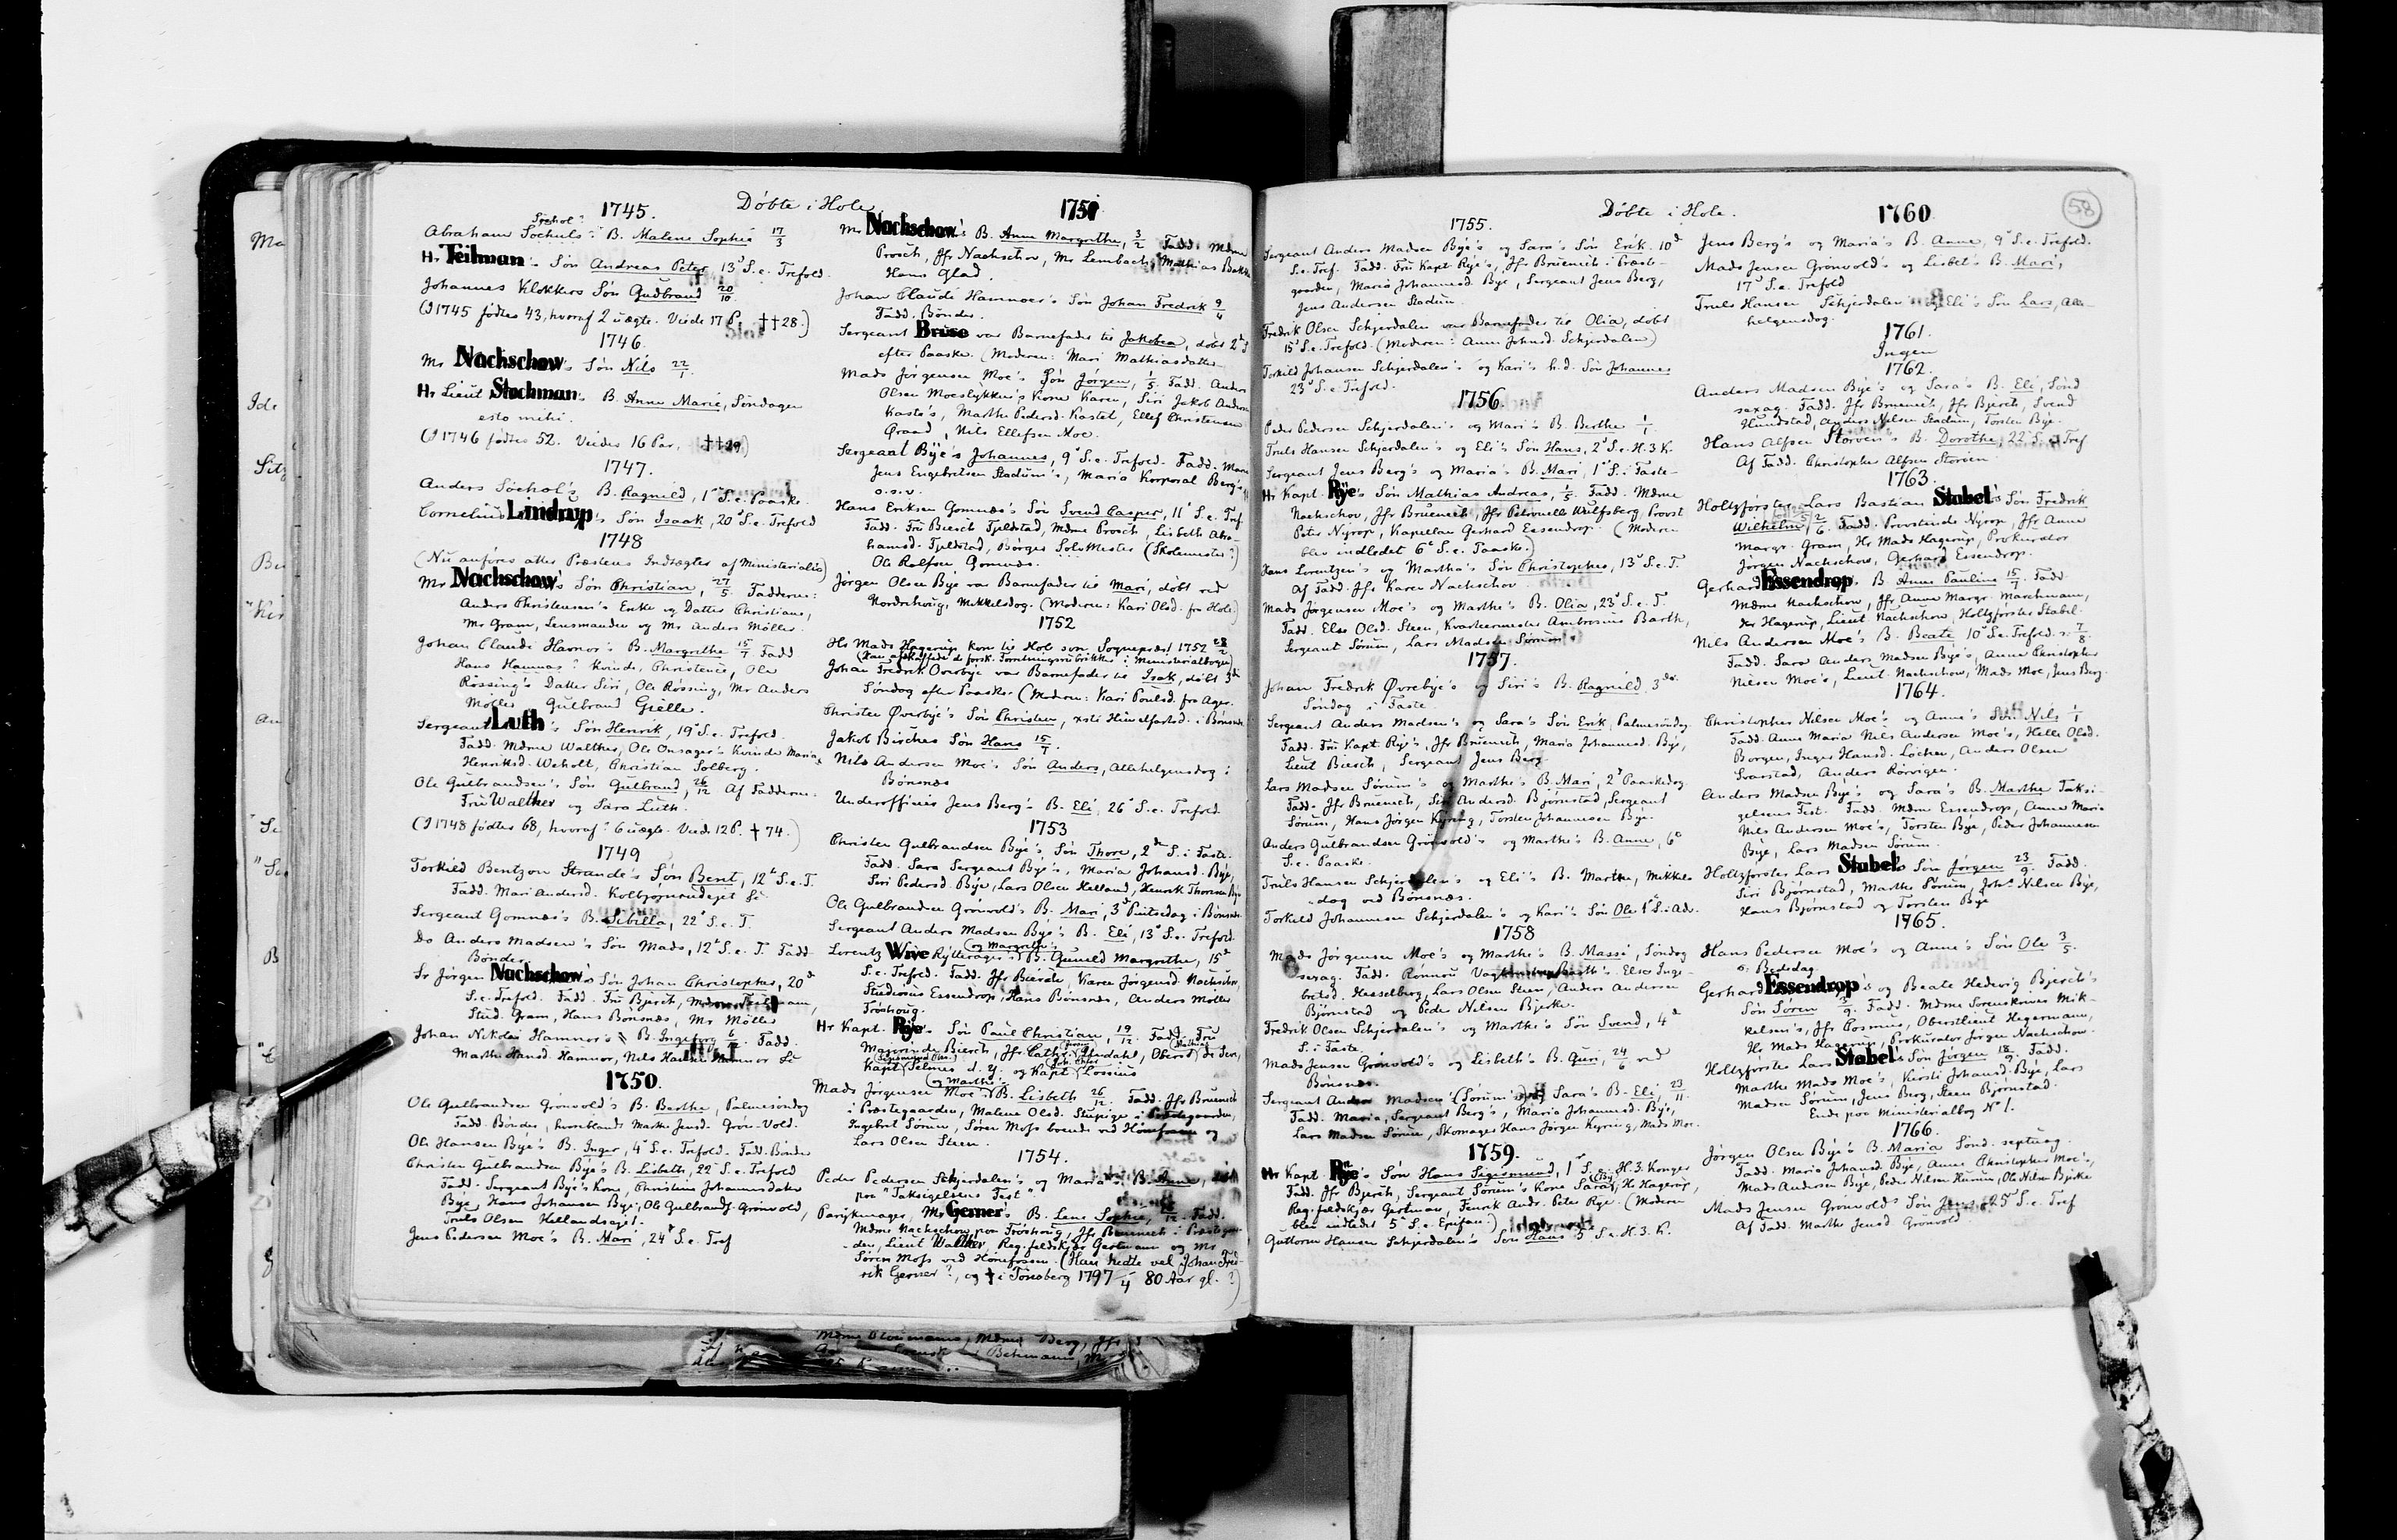 Døbte i Hole
1745.
Søehol?
Abraham Søehuls? B. Malene Sophie 17/3
Hr Teilman's Søn Andreas Peter 13d S. e. Trefold.
Johannes Klokkers Søn Gudbrand 20/10
(I 1745 fødtes 43, hvoraf 2 uægte. Viede 17 P. †† 28.)
1746.
Mr Nachschow's Søn Nils 22/1.
Hr Lieut Stochman's B. Anne Marie, Søndagen
esto mihi.
(I 1746 fødtes 52. Viedes 16 Par. †† 29)
1747.
Anders Søehol's B. Ragnild, 1d S. e. Paaske.
Cornelius Lindrup's Søn Isaak, 20d S. e. Trefold
1748
(Nu anføres atter Præstens Indtægter af Ministerialia)
Mr Nachschow's Søn Christian, 27/5 Fadderne:
Anders Christensen's Enke og Datter Christiane,
Mr Gram, Lensmanden og Mr Anders Møller.
Johan Claudi Hamor's B. Margrethe 15/7 Fadd
Hans Hannas? Kvinde, Christence, Ole
Røssing's Datter Siri, Ole Røsning, Mr Anders
Møller Gulbrand Gielle.
Sergeant Luth's Søn Henrik, 19d S. e. Trefold.
Fadd. Mdme Walther, Ole Onsager's Kvinde Maria
Henriksd. Weholt, Christian Solberg.
Ole Gulbrandsen's Søn Gulbrand, 26/12 Af Fadderne:
Fru Walther og Sara Luth.
(I 1748 fødtes 68, hvoraf? 6 uægte. Vied. 12 P. † 74.)
1749
Torkild Bentzon Strande's Søn Bent, 12te S. e. T.
Fadd. Mari Andersd. Kolbjørnrudejet &c
Sergeant Gomnæs's B. Sibilla, 22d S. e. T.
Do Anders Madsen's Søn Mads, 12d S. e. T. Fadd
Bønder.
Sr Jørgen Nachschow's Søn Johan Christopher, 20d
S. e. Trefold. Fadd. Fru Bjerch,
Stud. Gram, Hans Bønsnæs, Mr Møller
Johan Nikolai Hamnor's B. Ingeborg 6/12 Fadd.
Marthe Hansd. Hamnor, Nils Hamnor &c
1750.
Ole Gulbrandsen Grønvold's B. Berthe, Palmesøndag
Fadd. Bønder, hvoriblandt Marthe Jensd. Grøn-Vold.
Ole Hansen Bye's B. Inger, 4d S. e. Trefold. Fadd. Bønder
Christen Gulbrandsen Bye's B. Lisbeth, 22d S. e. Trefold
Fadd. Sergeant Bye's Kone, Christine Johannesdatter
Bye, Hans Johansen Bye, Ole Gulbrands. Grønvold,
Truls Olsen Hellandsejet.
Jens Pedersen Moe's B. Mari, 24d S. e. Tref
1751
Mr Nachschow's B. Anne Margrethe, 3/2 Fadd. Mdme
Prosch, Jfr Nachschov, Mr Lembach, Mathias
Hans Glad.
Johan Claudi Hamnoer's Søn Johan Fredrik 9/4
Fadd. Bønder.
Sergeant Bruse var Barnefader til Jakobea, døbt 2d S
efter Paaske. (Moderen: Mari Mathiasdatter
Mads Jørgensen Moe's Søn Jørgen, 1/5 Fadd. Anders
Olsen Moeslykkens Kone Karen, Siri Jakob Anders
Kaste's, Marthe Pedersd. Kastet, Ellef Christensen
Øraad, Nils Ellefsen Moe.
Sergeant Bye's Johannes, 9d S. e. Trefold. Fadd. Maren
Jens Engebretsen Stadum's, Maria Korporal Berg's
o. s. v.
Hans Eriksen Gomnæs's Søn Svend Casper, 11d S. e. Tref
Fadd. Fru Biesch Fjeldstad, Mdme Prosch, Lisbeth Abra-
hamsd. Fjeldstad, Børges SoloMester (Skolemester?)
Ole Rolfsen Gomnæs.
Jørgen Olsen Bye var Barnefader til Mari, døbt ved
Nordrehoug, Mikkelsdag. (Moderen: Kari Olsd. fra Hole.)
1752
Hr Mads Hagerup, kom til Hole som Sognepræst 1752 28/2
(han afskaffede de forsk. Forretningsrubrikker i Ministerialbogen)
Johan Fredrik Øverbye var Barnefader til Isak, døbt 3de
Søndag efter Paaske. (Moderen: Kari Poulsd. fra Ager.
Christen Øverbye's Søn Christen, xsti Himelfartsd. i Bønsnæs
Jakob Birches Søn Hans 15/7.
Nils Andersen Moe's Søn Anders, Allehelgensdag i
Bønsnæs
Underofficier Jens Berg's B. Eli, 26d S. e. Trefold
1753
Christen Gulbrandsen Bye's Søn Thore, 2den S. i Faste.
Fadd. Sara Sergeant Bye's, Maria Johansd. Bye,
Siri Pedersd. Bye, Lars Olsen Helland, Henrik Thoresen Bye
Ole Gulbrandsen Grønvold's B. Mari, 3d Pintsedag i Bønsnæs
Sergeant Anders Madsen Bye's B. Eli, 13d S. e. Trefold
og Margrethe's
Lorentz Wrive Rytterager's B. Gunild Margrethe, 15d
S. e. Trefold. Fadd. Jfr Bierch, Karen Jørgensd. Nachschov,
Studiosus Essendrop, Hans Bønsnæs, Anders Møller
Frøshoug.
Hr Kapt. Rye's Søn Paul Christian, 19/12 Fadd. Fru
Majorinde Biesch, Jfr. Cathr. Arndahl, Oberst de Seue,
Kapt Selmer d. y. og Kapt Lossius
og Marthe's
Mads Jørgensen Moe's B. Lisbeth 26/12. Fadd. Jfr Bruenech
i Præstegaarden, Malene Olsd. Stupige i Prestegaarden,
Ingebret Sørum, Søren Moss boende ved Hønefossen og
Lars Olsen Steen.
1754.
Peder Pedersen Schjerdalen's og Maria's B. Anne,
paa "Taksigelsens Fest".
Parijkmager, Mr Gerner's B. Lene Sophie, 12. Fadd.
Mdme Nachschow paa Frøshoug, Jfr Bruenech i Præstegaar-
den, Lieut Walther, Reg. feldskjær Gertmann og Mr
Søren Moss ved Hønefossen. (Han hedte vel Johan Fred-
rik Gerner?, og † i Tønsberg 1797 4 80 Aar gl.?)
Døbte i Hole.
58
1755.
Sergeant Anders Madsen Bye's og Sara's Søn Erik 10d
S. e. Tref. Fadd. Fru Kapt Rye's, Jfr Bruenech i Præste-
gaarden, Maria Johannesd. Bye, Sergeant Jens Berg,
Jens Andersen Stadum.
Fredrik Olsen Schjerdalen var Barnefader til Olia, døbt
15d S. e. Trefold. (Moderen: Anne Johnsd. Schjerdalen)
Torkild Johansen Schjerdalen's og Kari's h. d. Søn Johannes
23d S. e. Trefold.
1756.
Peder Pedersen Schjerdalen's og Mari's B. Berthe 1/1.
Truls Hansen Schjerdalen's og Eli's Søn Hans, 2d S. e. H. 3 K.
Sergeant Jens Berg's og Maria's B. Mari, 1d S. i Faste-
Hr Kapt. Rye's Søn Mathias Andreas, 1/5. Fadd. Mdme
Nachschov, Jfr Bruenech, Jfr Petronelle Wulfsberg, Provst
Peter Nyrop, Kapellan Gerhard Essendrop. (Moderen
blev indledet 6d S. e. Paaske.)
Hans Lorentzen's og Martha's Søn Christopher, 13d S. e. T.
Af Fadd. Jfr Karen Nachschov
Mads Jørgensen Moe's og Marthe's B. Olia, 23d S. e. T.
Fadd. Else Olsd. Steen, Kvartermester Ambrosius Barth,
Sergeant Sørum, Lars Madsen Sørum.
1757.
Johan Fredrik Øvrebye's og Siri's B. Ragnild 3die
Søndag i Faste
Sergeant Anders Madsen's og Sara's Søn Erik, Palmesøndag
Fadd. Fru Kapt. Rye's, Jfr Bruenech, Maria Johannesd. Bye,
Lieut Biesch, Sergeant Jens Berg.
Lars Madsen Sørum's og Marthe's B. Mari, 2d Paaskedag
Fadd. Jfr Bruenech, Siri Andersd. Bjørnstad, Sergeant
Sørum, Hans Jørgen Kyring, Torsten Johannesen Bye.
Anders Gulbrandsen Grønvold's og Marthe's B. Anne, 6d
S. e. Paaske.
Truls Hansen Schjerdalen's og Eli's B. Marthe, Mikkels-
dag ved Bønsnæs.
Torkild Johannesen Schjerdalen's og Kari's Søn Ole 1d S. i Ad.
1758
Mads Jørgensen Moe's og Marthe's B. Massi, Søndag
sexag. Fadd. Rønnou Barth's. Else Inge-
bretsd. Hesselberg, Lars Olsen Steen, Anders Andersen
Bjørnstad og Peder Nilsen Bjerke.
Fredrik Olsen Schjerdalen's og Marthe's Søn Svend, 4d
S. i Faste.
Mads Jensen Grønvold's og Lisbeth's B. Guri, 24/6 ved
Bønsnæs.
Sergeant Anders Madsen's (Sørum) og Sara's B. Eli, 23/11.
Fadd. Maria, Sergeant Berg's, Maria Johannesd. Bye,
Lars Madsen Sørum, Skomager Hans Jørgen Kyring, Mads Moe.
1759.
Hr Kapt. Rye's Søn Hans Sigismund, 1d S. e. H. 3. Konger
Fadd. Jfr Bjerch, Sergeant Sørum's Kone Sara (Bye), Hr Hagerup,
Reg. feldskjær Gertman, Henrik Andr. Peter Rye. (Moderen
blev indledet 5d S. e. Epifan.)
Guttorm Hansen Schjerdalen's Søn Hans 5d S. e. H. 3. K.
1760
Jens Berg's og Maria's B. Anne, 9d S. e. Trefold.
Mads Jensen Grønvold's og Lisbet's B. Mari,
17d S. e. Trefold
Truls Hansen Schjerdalen's og Eli's Søn Lars, Alle-
helgensdag.
1761.
Ingen
1762.
Anders Madsen Bye's og Sara's B. Eli, Sønd
sexag. Fadd. Jfr Bruenech, Jfr Bjerch, Svend
Hundstad, Anders Nilsen Stadum, Torsten Bye.
Hans Alfsen Storøen's B. Dorothe, 22d S. e. Tref
Af Fadd. Christopher Alfsen Storøen.
1763.
Holtzførster Lars Bastian Stabel's Søn Fredrik
Wilhelm, 2/6. Fadd. Provstinde Nyrop, Jfr Anne
Margr. Gram, Hr Mads Hagerup, Prokurator
Jørgen Nachschow, Gerhard Essendrop.
Gerhard Essendrop's B. Anne Pauline 15/7. Fadd.
Mdme Nachschow, Jfr Anne Margr. Marchmann,
Hr Hagerup, Lieut Nachschow, Holtzførster Stabel.
Nils Andersen Moe's B. Beate 10d S. e. Trefold. 7/8.
Fadd. Sara Anders Madsen Bye's, Anne Christopher
Nilsen Moe's, Lieut Nachschow, Mads Moe, Jens Berg.
1764.
Christopher Nilsen Moe's og Anne's Søn Nils 1/1
Fadd. Anne Maria Nils Andersen Moe's, Helle Olsd.
Borgen, Inger Hansd. Løchen, Anders Olsen
Svarstad, Anders Rørvigen.
Anders Madsen Bye's og Sara's B. Marthe Taksi-
gelsens Fest. Fadd. Mdm Essendrop, Anne Maria
Nils Andersen Moe's, Torsten Bye, Peder Johannesen
Bye, Lars Madsen Sørum.
Holtzførster Lars Stabel's Søn Jørgen 23/9. Fadd.
Siri Bjørnstad, Marthe Sørum, Johs. Nilsen Bye,
Hans Bjørnstad og Torsten Bye
1765.
Hans Pedersen Moe's og Anne's Søn Ole 3/5.
o: Bededag.
Gerhard Essendrop's og Beate Hedevig Bjerch's
Søn Søren 3/9. Fadd. Mdme Sorenskriver Mik-
kelsen's, Jfr Rosmus, Oberstlieut Hegermann,
Hr Mads Hagerup, Prokurator Jørgen Nachschow.
Holtzførster Lars Stabel's Søn Jørgen 18/9. Fadd.
Marthe Mads Moe's, Kirsti Johansd. Bye, Lars
Madsen Sørum, Jens Berg, Steen Bjørnstad.
Ende paa Ministerialbog No 1.
1766.
Jørgen Olsen Bye's B. Maria Sønd. septuag.
Fadd. Maria Johansd. Bye, Anne Christopher Moe's,
Mads Andersen Bye, Peder Nilsen Hurum, Ole Nilsen Bjerke
Mads Jensen Grønvold's Søn Jens 25d S. e. Tref
Af Fadd. Marthe Jensd Grønvold